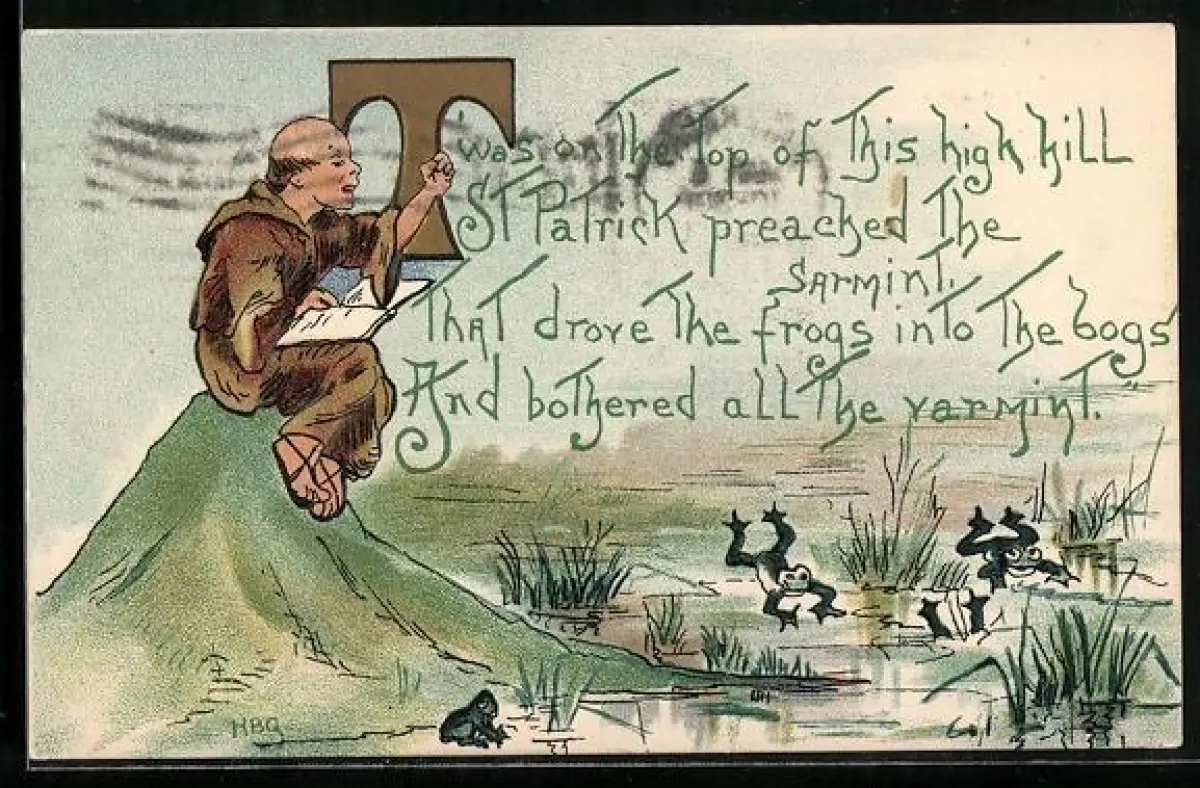 T'was on The Top of This high hill
ST Patrick preached The
SArmint.
ThAT drove The frogs inTo The bogs
And boThered all The varmint."
HBG